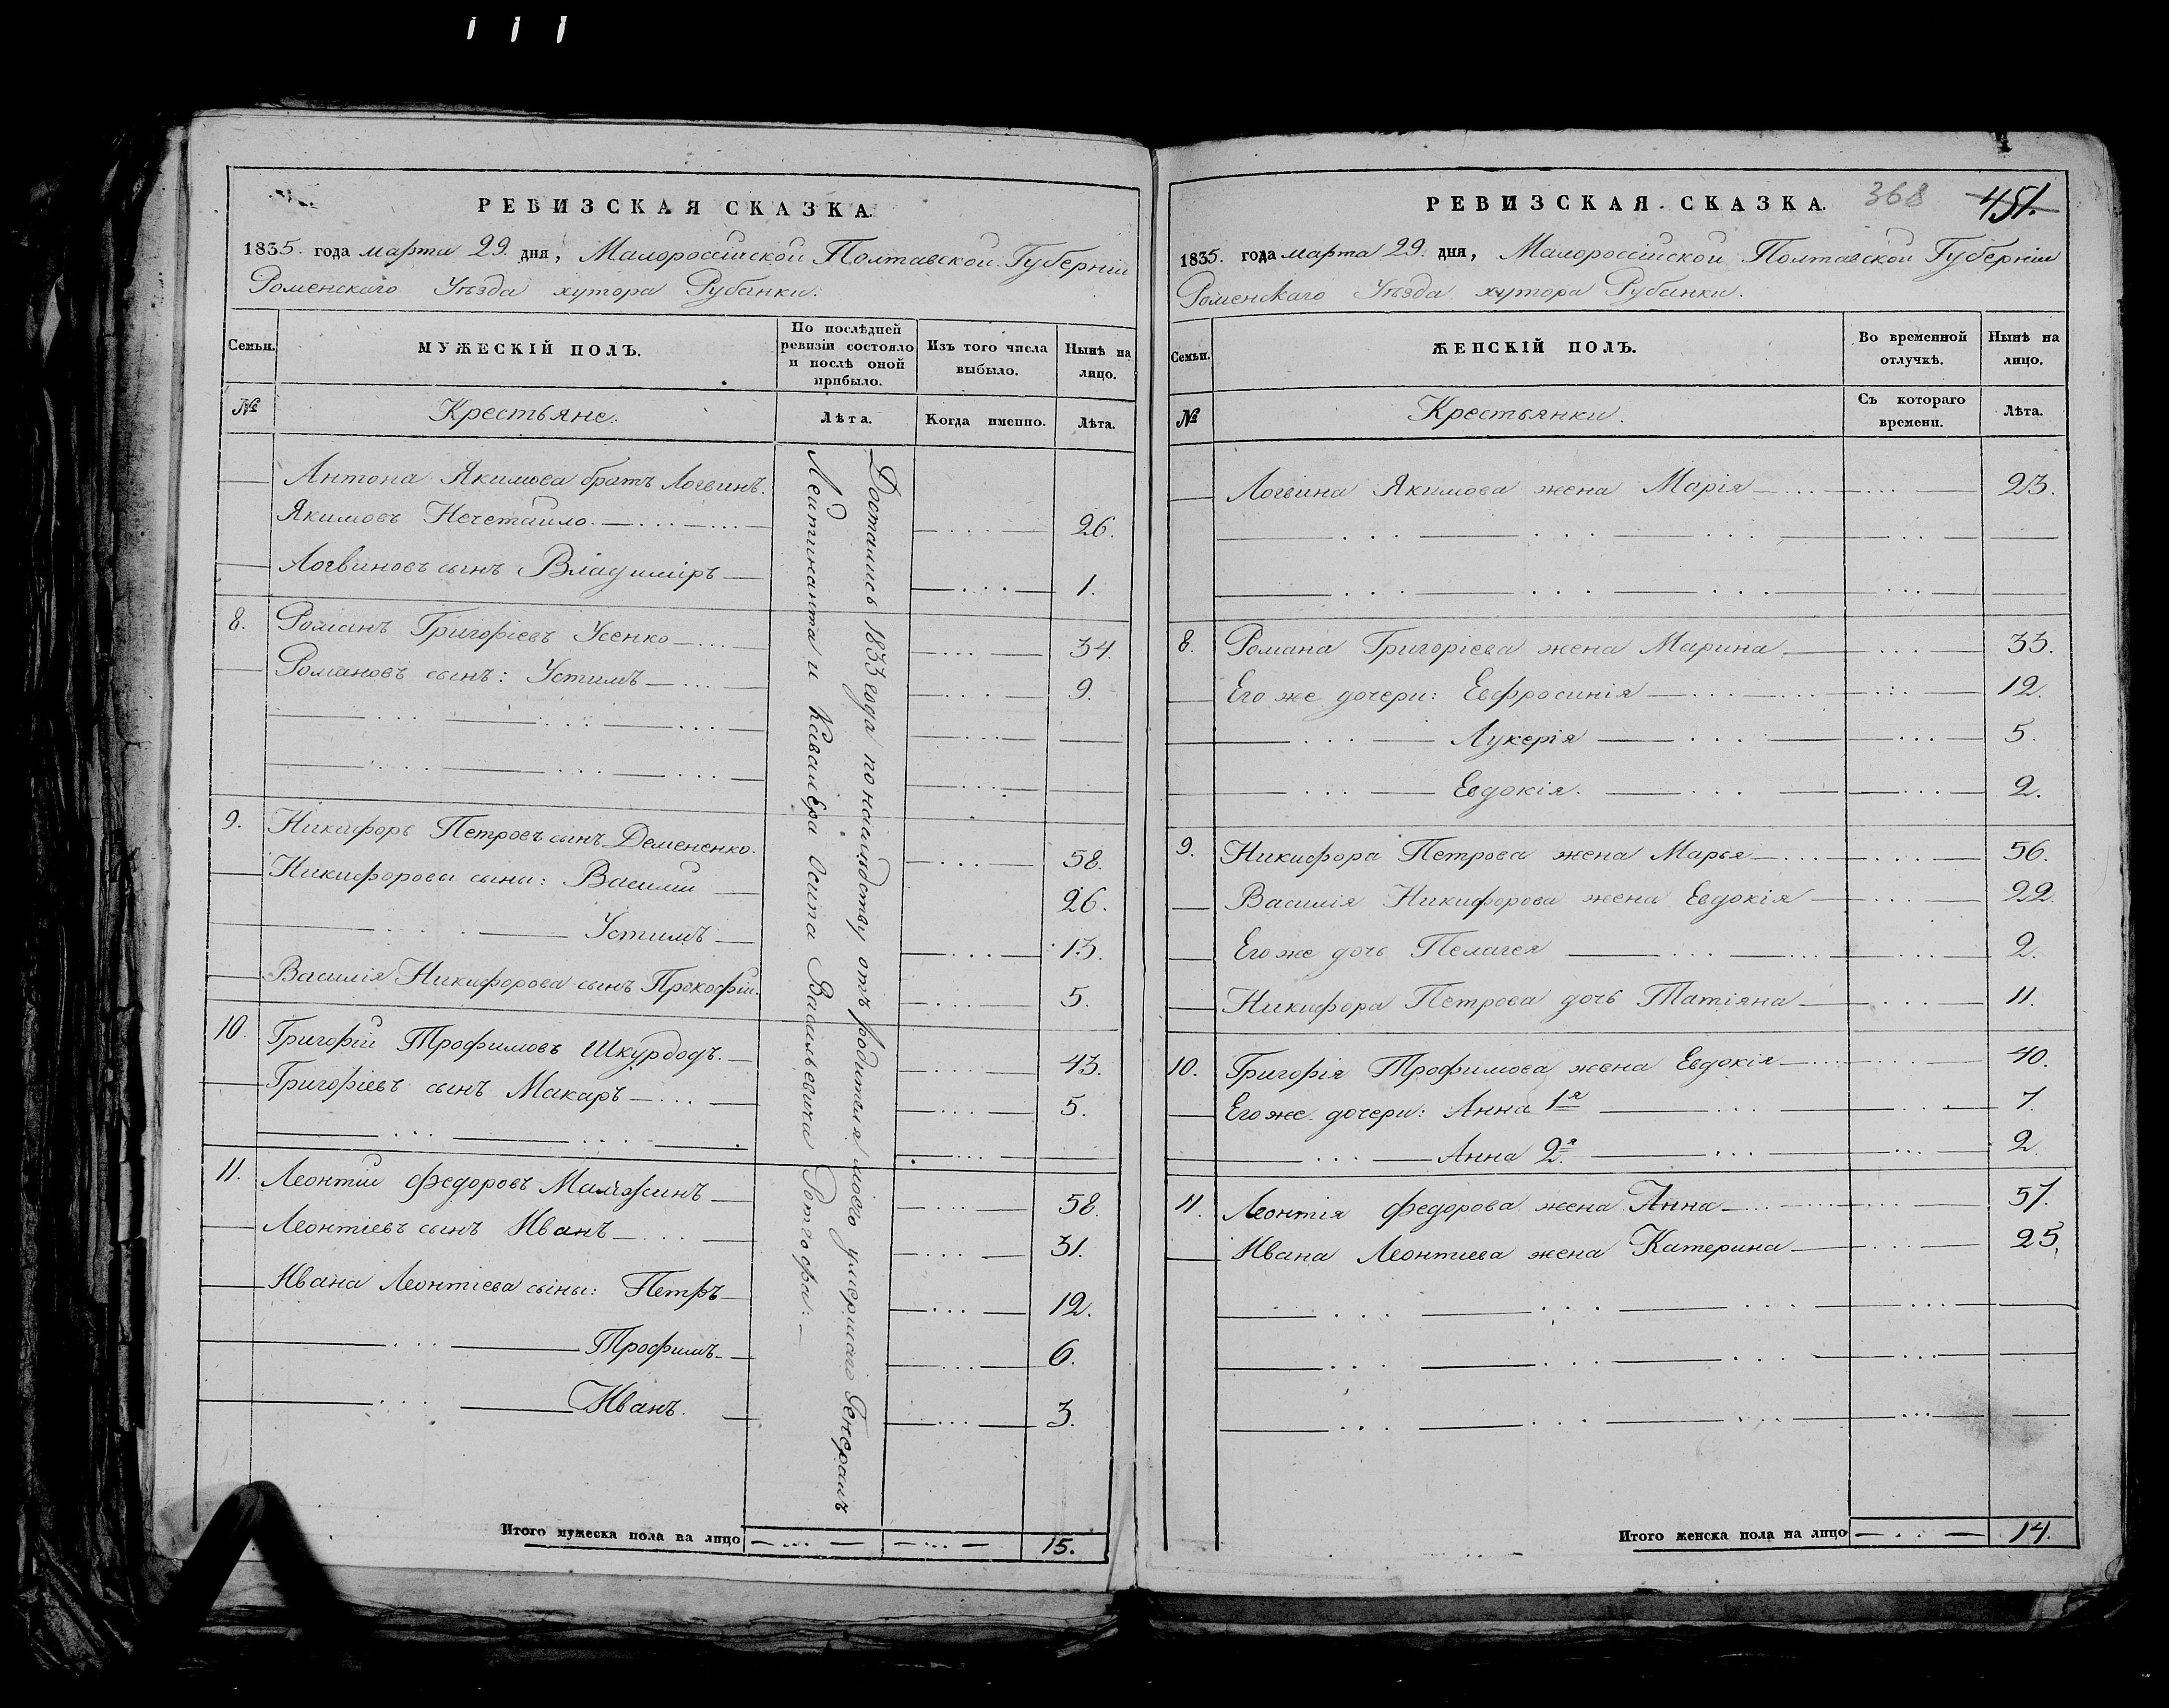 РЕВИЗСКАЯ СКАЗКА.
1835. года марта 29. дня, Малороссійской Полтавской Губерніи
Роменскаго Уѣзда хутора Рубанки.
Семьи.
МУЖЕСКІЙ ПОЛЪ.
По послѣдней ревизіи состояло и послѣ оной прибыло.
Изъ того числа выбыло.
Нынѣ на лицо.
№
Крестьяне.
Лѣта.
Когда именно.
Лѣта.
Антона Якимова братъ Логвинъ.
Якимовъ Нечетайло. 26.
Логвиновъ сынъ Владиміръ 1.
8. Романъ Григоріевъ Усенко 34.
Романовъ сынъ: Устимъ 9.
9. Никифоръ Петровъ сынъ Демененко. 58.
Никифоровы сыны: Василій 26.
Устимъ 13.
Василія Никифорова сынъ Прокофій. 5.
10. Григорій Трофимовъ Шкурдодъ. 43.
Григоріевъ сынъ Макаръ 5.
11. Леонтій Федоровъ 58.
Леонтіевъ сынъ Иванъ 31.
Ивана Леонтіева сыны: Петръ 12.
Трофимъ 6.
Иванъ. 3.
Достались 1833 года по наследству отъ родителя моего умершаго Генералъ
Лейтинанта и Кавалера Осипа Васильевича
Итого мужеска пола на лицо 15.
РЕВИЗСКАЯ СКАЗКА. 368 451.
1835. года марта 29. дня, Малороссійской Полтавской Губерніи
Роменскаго Уѣзда хутора Рубанки.
Семьи.
ЖЕНСКІЙ ПОЛЪ.
Во временной отлучкѣ.
Нынѣ на лицо.
№
Крестьянки.
Съ котораго времени.
Лѣта.
Логвина Якимова жена Марія 23.
8. Романа Григоріева жена Марина 33.
Его же дочери: Евфросинія 12.
Лукерія 5.
Евдокія. 2.
9. Никифора Петрова жена Марья 56.
Василія Никифорова жена Евдокія 22.
Его же дочь Пелагея 2.
Никифора Петрова дочь Татіяна 11.
10. Григорія Трофимова жена Евдокія 40.
Его же дочери: Анна 1я 7.
Анна 2я 2.
11. Леонтія Федорова жена Анна 57.
Ивана Леонтиева жена Катерина 25.
Итого женска пола на лицо 14.